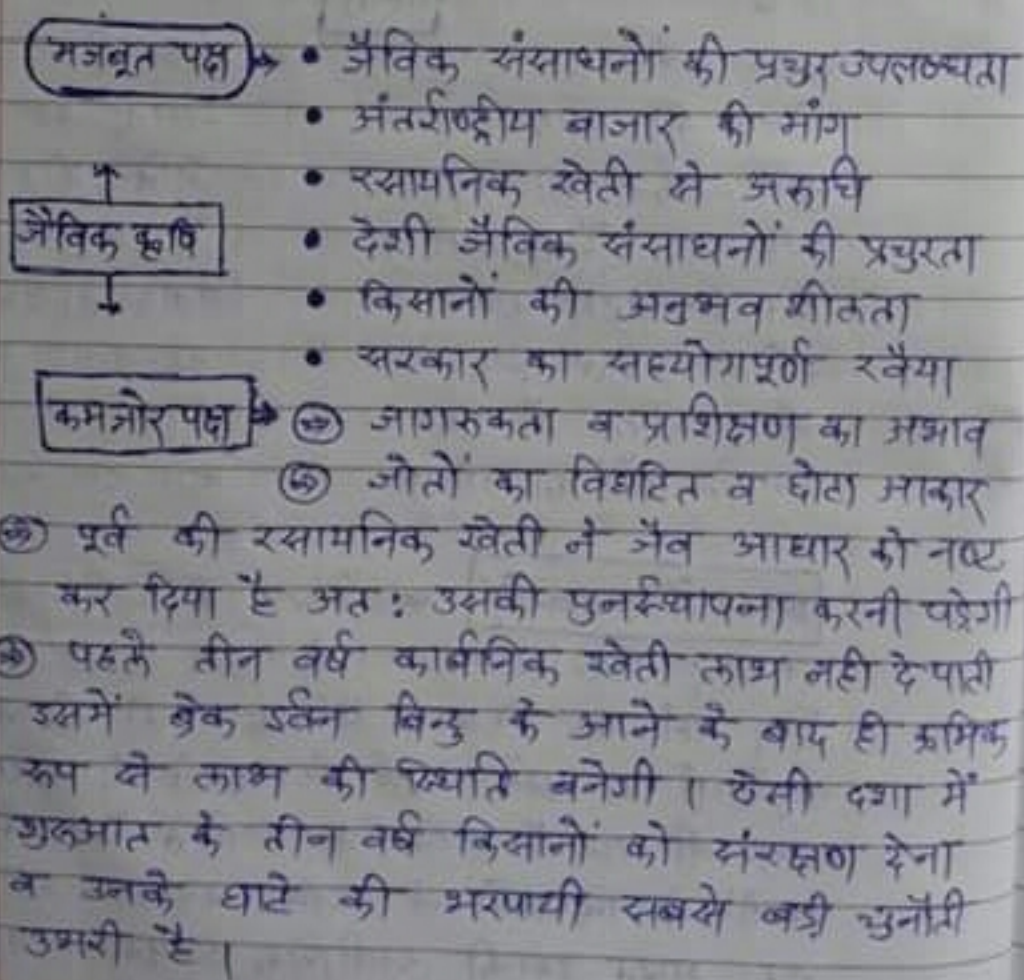 मजबूत पक्ष → • जैविक संसाधनों की प्रचुर उपलब्धता
• अंतर्राष्ट्रीय बाजार की मांग
• रसायनिक खेती से अरुचि
जैविक कृषि • देशी जैविक संसाधनों की प्रचुरता
• किसानों की अनुभव शीलता
• सरकार का सहयोगपूर्ण रवैया
कमजोर पक्ष → जागरुकता व प्रशिक्षण का अभाव
जोतों का विघटित व छोटा आकार
पूर्व की रसायनिक खेती ने जैव आधार को नष्ट
कर दिया है अत: उसकी पुनर्स्थापना करनी पड़ेगी
पहले तीन वर्ष कार्बनिक खेती लाभ नही दे पाती
इसमें ब्रेक इवन बिन्दु के आने के बाद ही क्रमिक
रूप से लाभ की स्थिति बनेगी। ऐसी दशा में
शुरुआत के तीन वर्ष किसानों को संरक्षण देना
व उनके घाटे की भरपायी सबसे बड़ी चुनौती
उभरी है।